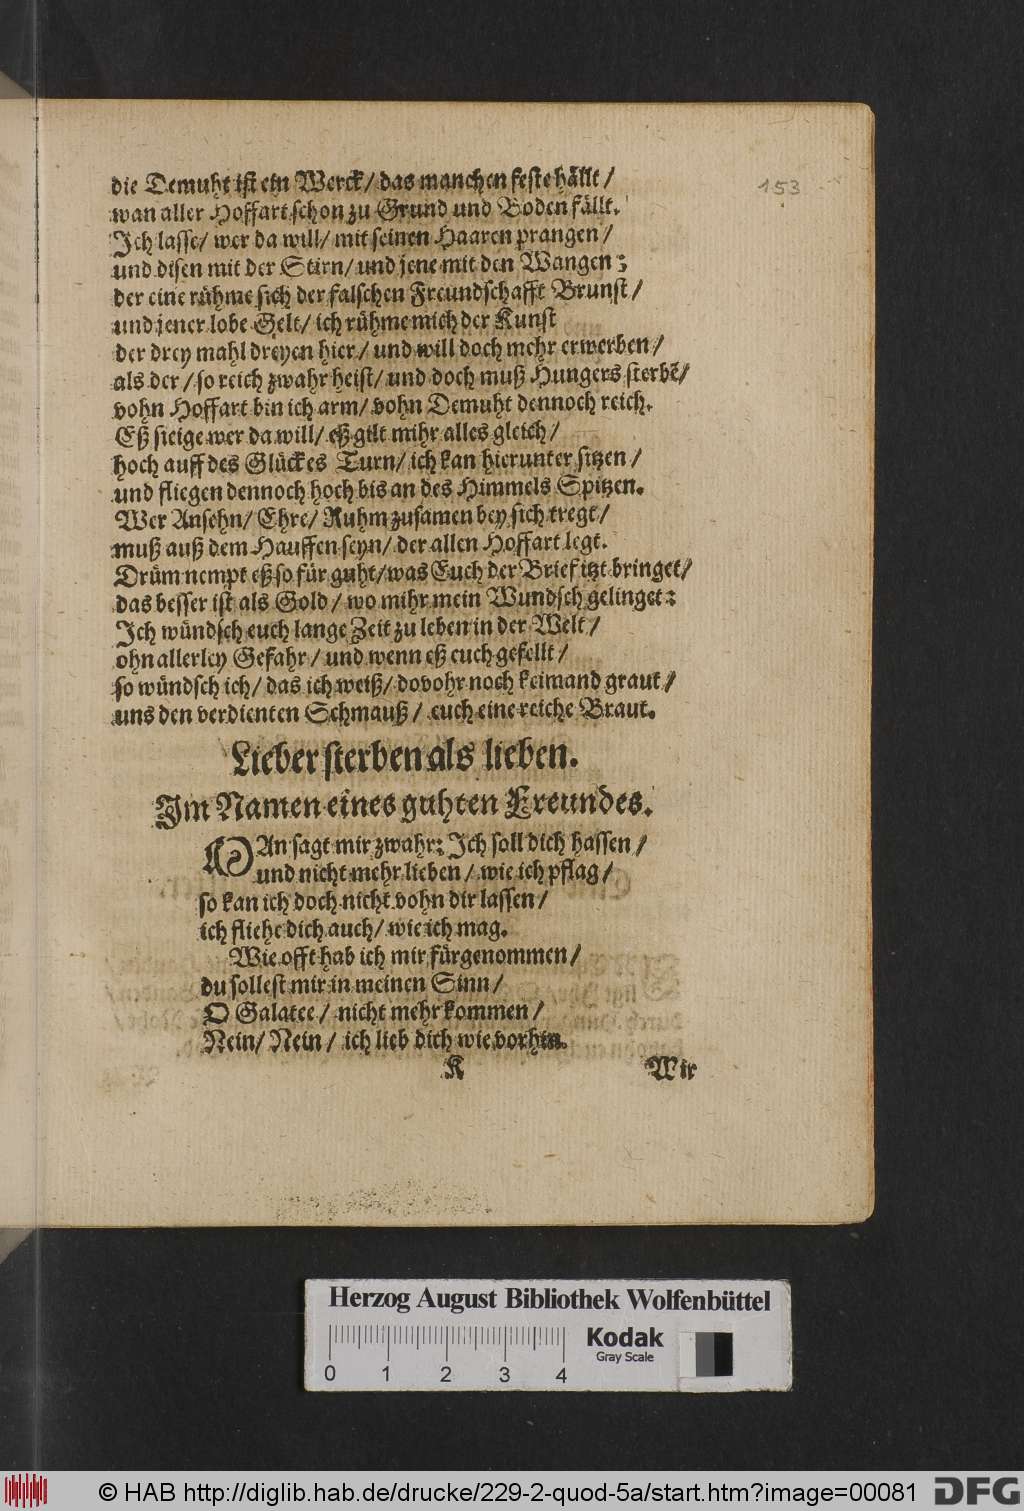 153
die Demuht ist ein Werck/ das manchen feste hällt/
wan aller Hoffart schon zu Grund und Boden fällt.
Ich lasse/ wer da will/ mit seinen Haaren prangen/
und disen mit der Stirn/ und jene mit den Wangen;
der eine rühme sich der falschen Freundschafft Brunst/
und jener lobe Gelt/ ich rühme mich der Kunst
der drey mahl dreyen hier/ und will doch mehr erwerben/
als der/ so reich zwahr heist/ und doch muß Hungers sterbẽ/
vohn Hoffart bin ich arm/ vohn Demuht dennoch reich.
Eß steige wer da will/ eß gilt mihr alles gleich/
hoch auff des Glückes Turn/ ich kan hierunter sitzen/
und fliegen dennoch hoch bis an des Himmels Spitzen.
Wer Ansehn/ Ehre/ Ruhm zusamen bey sich tregt/
muß auß dem Hauffen seyn/ der allen Hoffart legt.
Drüm nempt eß so für guht/ was Euch der Brief itzt bringet/
das besser ist als Gold/ wo mihr mein Wundsch gelinget:
Ich wündsch euch lange Zeit zu leben in der Welt/
ohn allerley Gefahr/ und wenn eß euch gefellt/
so wündsch ich/ das ich weiß/ dovohr noch keimand graut/
uns den verdienten Schmauß/ euch eine reiche Braut.
Lieber sterben als lieben.
Im Namen eines guhten Freundes.
MAn sagt mir zwahr: Ich soll dich hassen/
und nicht mehr lieben/ wie ich pflag/
so kan ich doch nicht vohn dir lassen/
ich fliehe dich auch/ wie ich mag.
Wie offt hab ich mir fürgenommen/
du sollest mir in meinen Sinn/
O Galatee/ nicht mehr kommen/
Nein/ Nein/ ich lieb dich wie vorhin.
K Wir
Herzog August Bibliothek Wolfenbüttel
Kodak
Gray Scale
0 1 2 3 4
© HAB http://diglib.hab.de/drucke/229-2-quod-5a/start.htm?image=00081
DFG